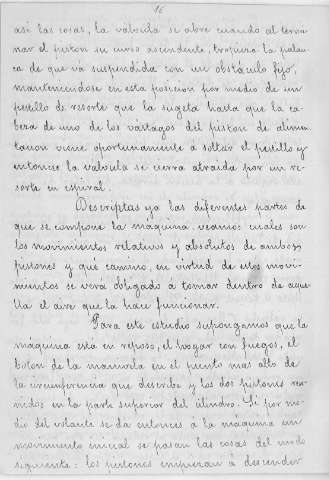 16
así las cosas, la valvula se abre cuando al termi
nar el piston su curso ascendente, tropieza la palan
ca de que va suspendida con un obstáculo fijo,
manteniendose en esta posicion por medio de un
pestillo de resorte que la sugeta hasta que la ca
beza de uno de los vástagos del piston de alimen
tacion viene oportunamente á soltar el pestillo y
entonces la valvula se cierra atraida por un re
sorte en espiral.
Descriptas ya las diferentes partes de
que se compone la máquina, veamos cuales son
los movimientos relativos y absolutos de ambos
pistones y qué camino, en virtud de estos movi
mientos se verá obligado á tomar dentro de aque
lla el aire que la hace funcionar.
Para este estudio supongamos que la
máquina está en reposo, el hogar con fuegos, el
boton de la manivela en el punto mas alto de
la circunferencia que describe y los dos pistones reu
nidos en la parte superior del cilindro. Si por me
dio del volante se da entonces á la máquina un
movimiento inicial se pasan las cosas del modo
siguiente: los pistones empiezan á descender